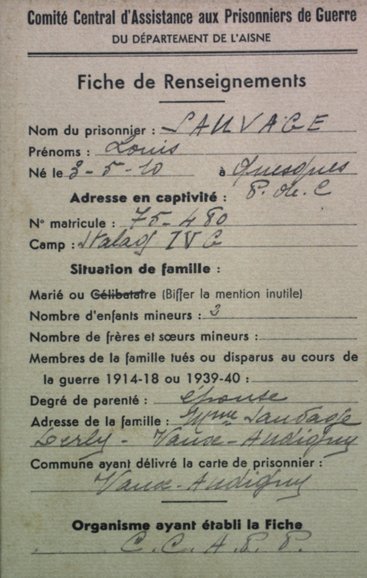 Comité Central d'Assistance aux Prisonniers de Guerre
DU DÉPARTEMENT DE L'AISNE
Fiche de Renseignements
Nom du prisonnier : SAUVAGE
Prénoms : Louis
Né le 3-5-10 à Quesques
P. de. C
Adresse en captivité :
N° matricule : 75-480
Camp : Stalag IV C
Situation de famille :
Marié ou Célibataire (Biffer la mention inutile)
Nombre d'enfants mineurs : 3
Nombre de frères et sœurs mineurs :
Membres de la famille tués ou disparus au cours de
la guerre 1914-18 ou 1939-40 :
Degré de parenté : épouse
Adresse de la famille : Mme Sauvage
Vaux-Andigny
Commune ayant délivré la carte de prisonnier :
Vaux-Andigny
Organisme ayant établi la Fiche
C. C. A. P. P.